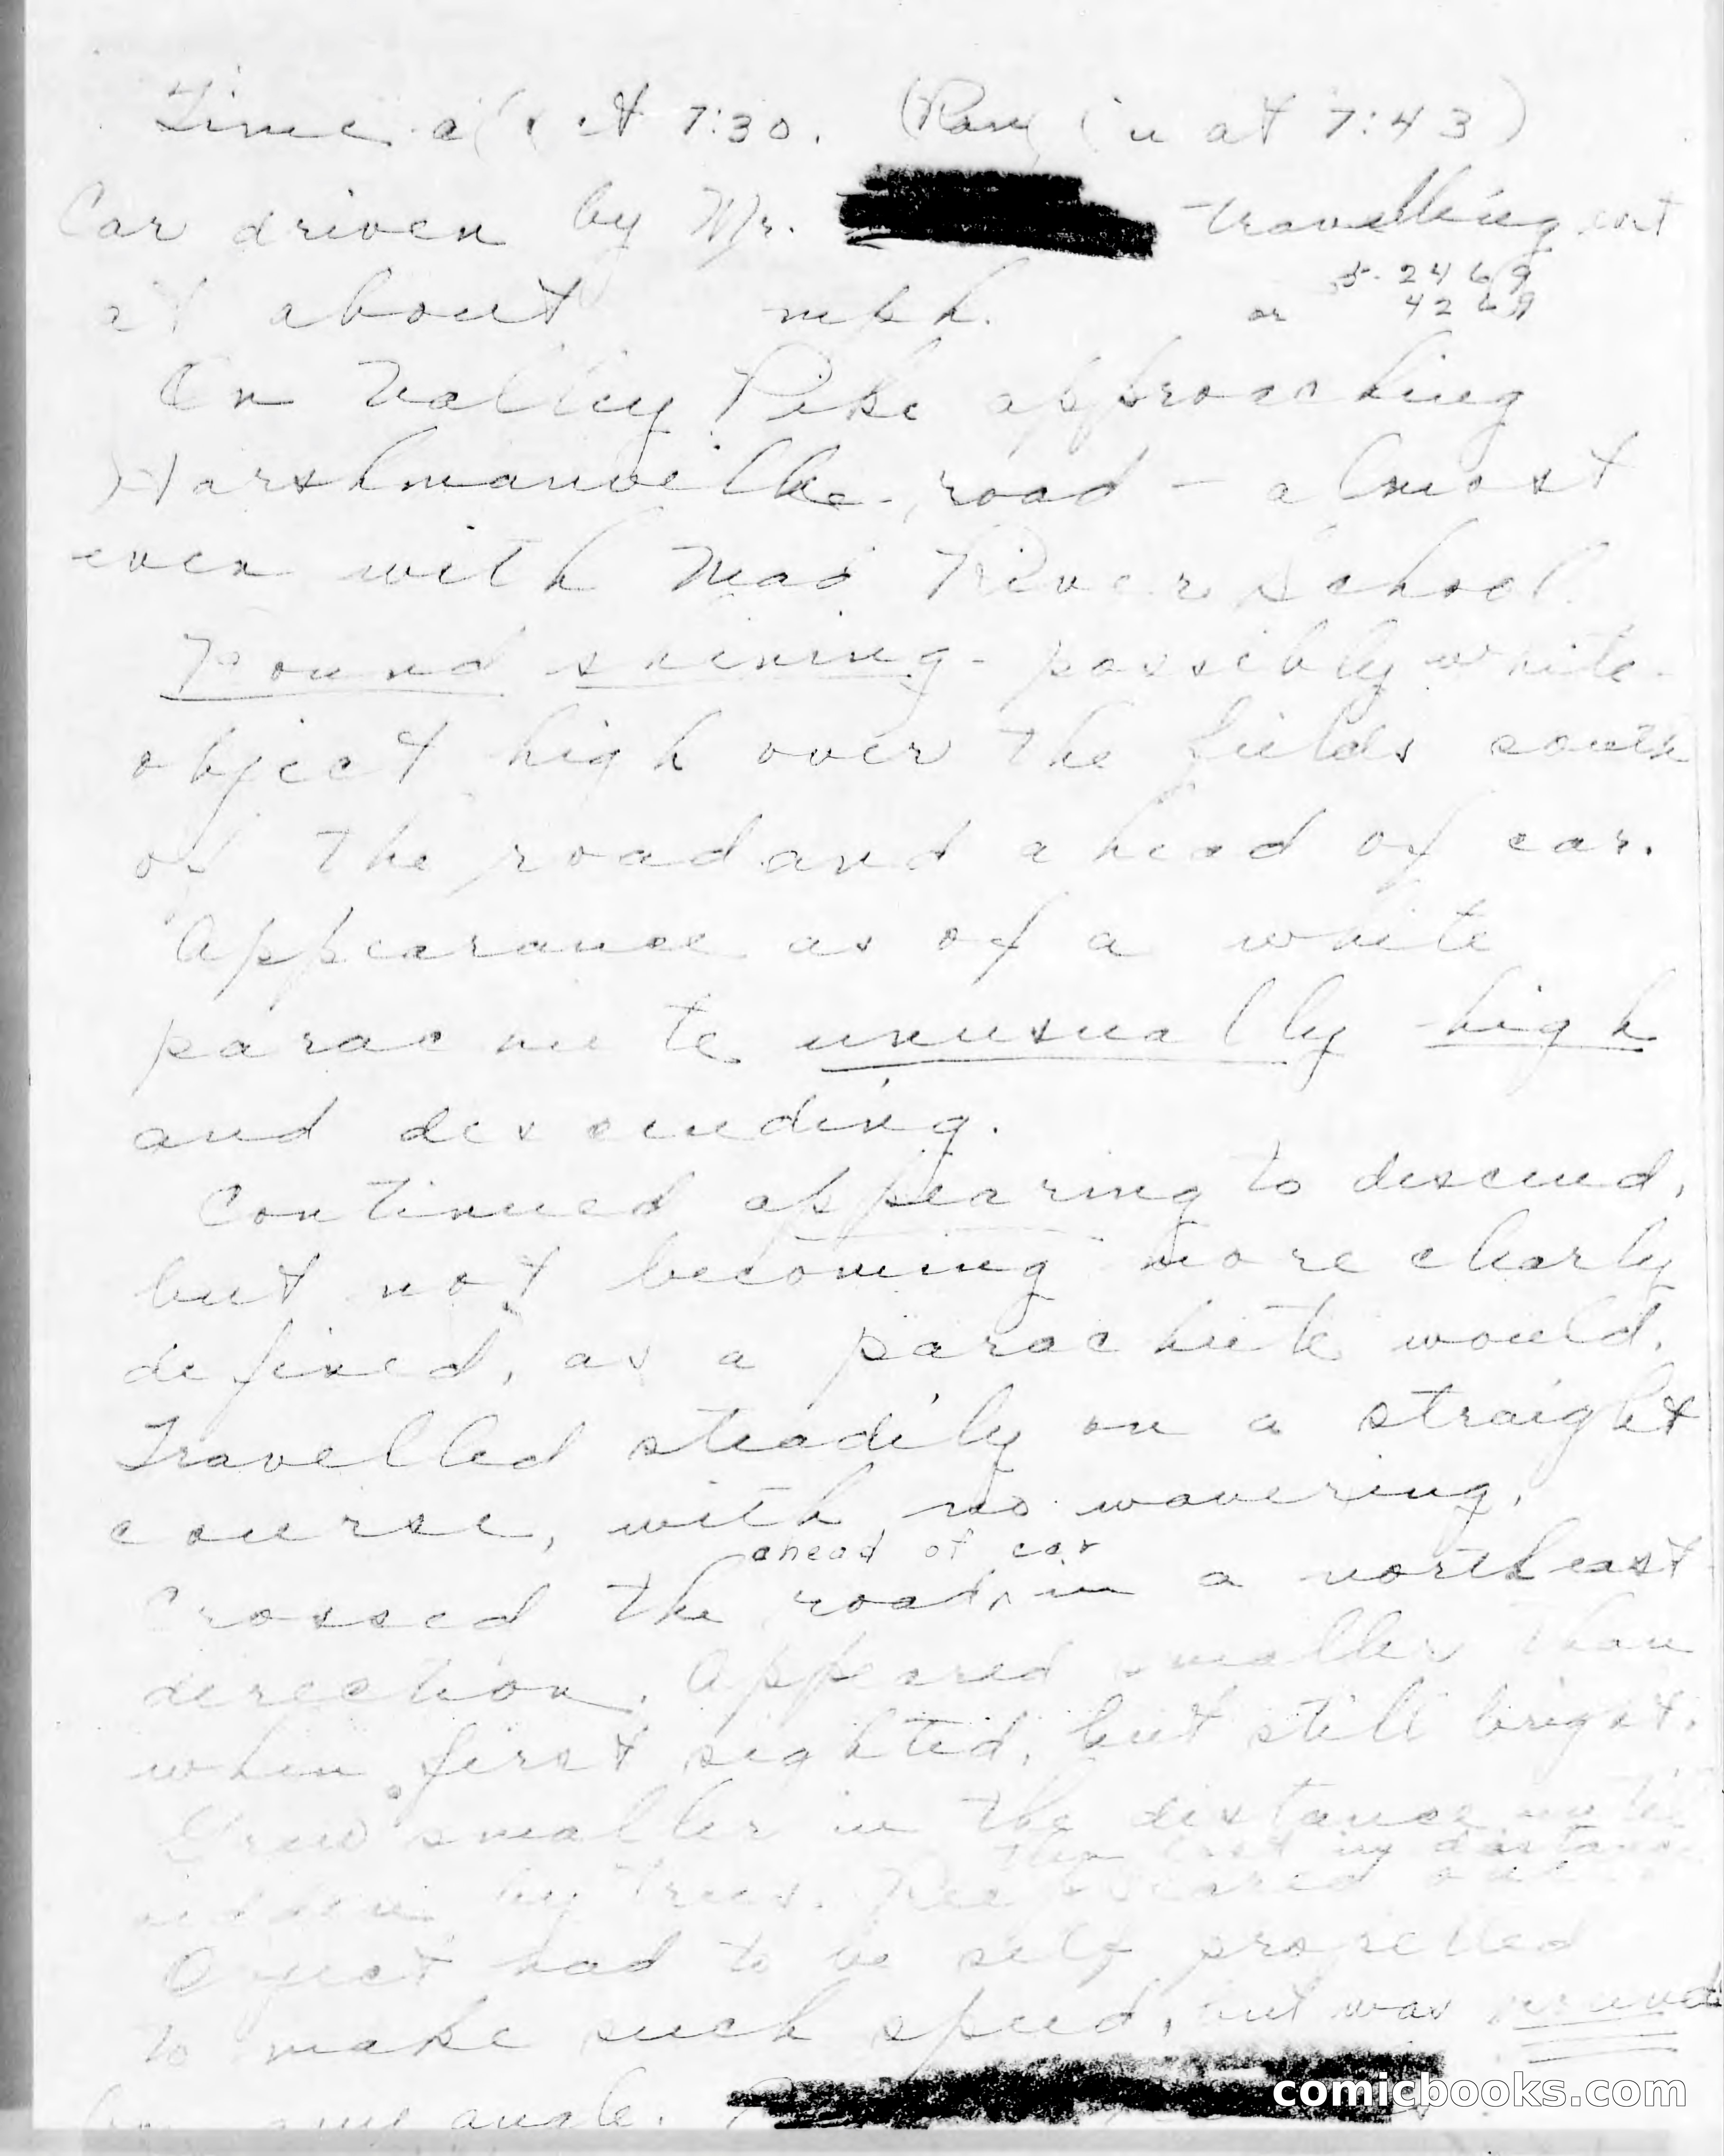 Time at 7:30. (Rang in at 7:43)
Car driven by Mr. travelling east
at about mph. or 5-2469
4269
On Valley Pike approaching
Harshmanville road - almost
even with Mad River School.
Round shining - possibly white -
object high over the fields south
of the road and ahead of car.
Appearance as of a white
parachute unusually high
and descending.
Continued appearing to descend,
but not becoming more clearly
defined, as a parachute would.
Travelled steadily on a straight
course, with no wavering.
ahead of car
Crossed the road in a northeast
direction. Appeared smaller than
when first sighted, but still bright.
Grew smaller in the distance until
then lost in distance
hidden by trees.
Object had to be self propelled
to make such speed, but was round
angle.
comicbooks.com